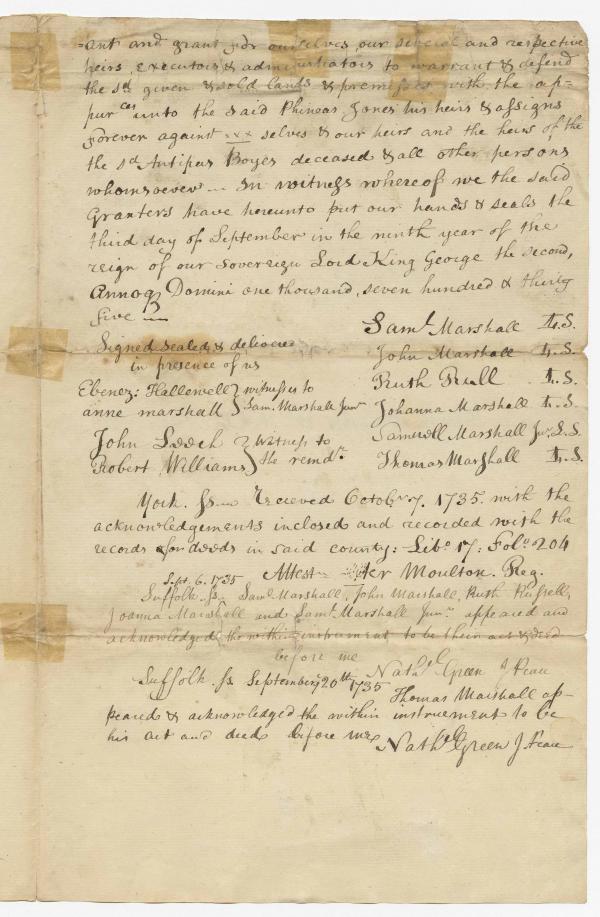 =ant and grant for ourselves our several and respective
heirs, executors & administrators to warrant & defend
the sd given & sold lands & premisses with the ap-
purces unto the said Phineas Jones his heirs & assigns
forever against xxx selves & our heirs and the heirs of the
the sd Antipas Boyes deceased & all other persons
whomsoever — In witness whereof we the said
Granters have hereunto put our hands & seals the
third day of September in the ninth year of the
reign of our Sovereign Lord King George the second,
Annoq Domini one thousand, seven hundred & thirty
five —
Saml Marshall L.S.
Signed sealed & delivered
John Marshall L.S.
in presence of us
Ruth Rull L.S.
Ebenez: Hallewell } witnesses to
anne marshall } Sam. Marshall Junr
Johanna Marshall L.S.
Samuell Marshall Jur L.S.
John Leech } Witness to
Robert Williams } the remdr
Thomas Marshall L.S.
York. Ss — Recieved Octobr 7. 1735. with the
acknowledgements inclosed and recorded with the
records for deeds in said county: Libo 17: Folo 204
Attest Moulton. Reg.
Sept. 6. 1735
Suffolk. Ss. Saml Marshall, John Marshall, Ruth Russell,
Joanna Marshall and Saml Marshall Junr appeared and
acknowledged the within instrument to be their act & deed
before me
Nathel Green J Peace
Suffolk. Ss September 20th 1735
Thomas Marshall ap-
peared & acknowledged the within instruement to be
his act and deed before me
Nathel Green J Peace